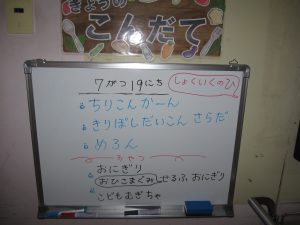 きょうの
こんだて
7がつ19にち
しょくいくのひ
ちりこんかーん
きりぼしだいこん さらだ
めろん
おやつ
おにぎり
おひさまぐみ せるふおにぎり
こどもむぎちゃ